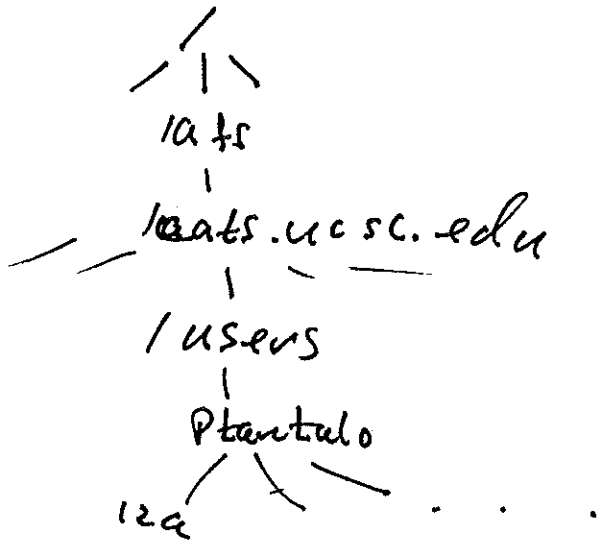 /
/afs
/cats.ucsc.edu
/users
Ptantalo
12a
. . .